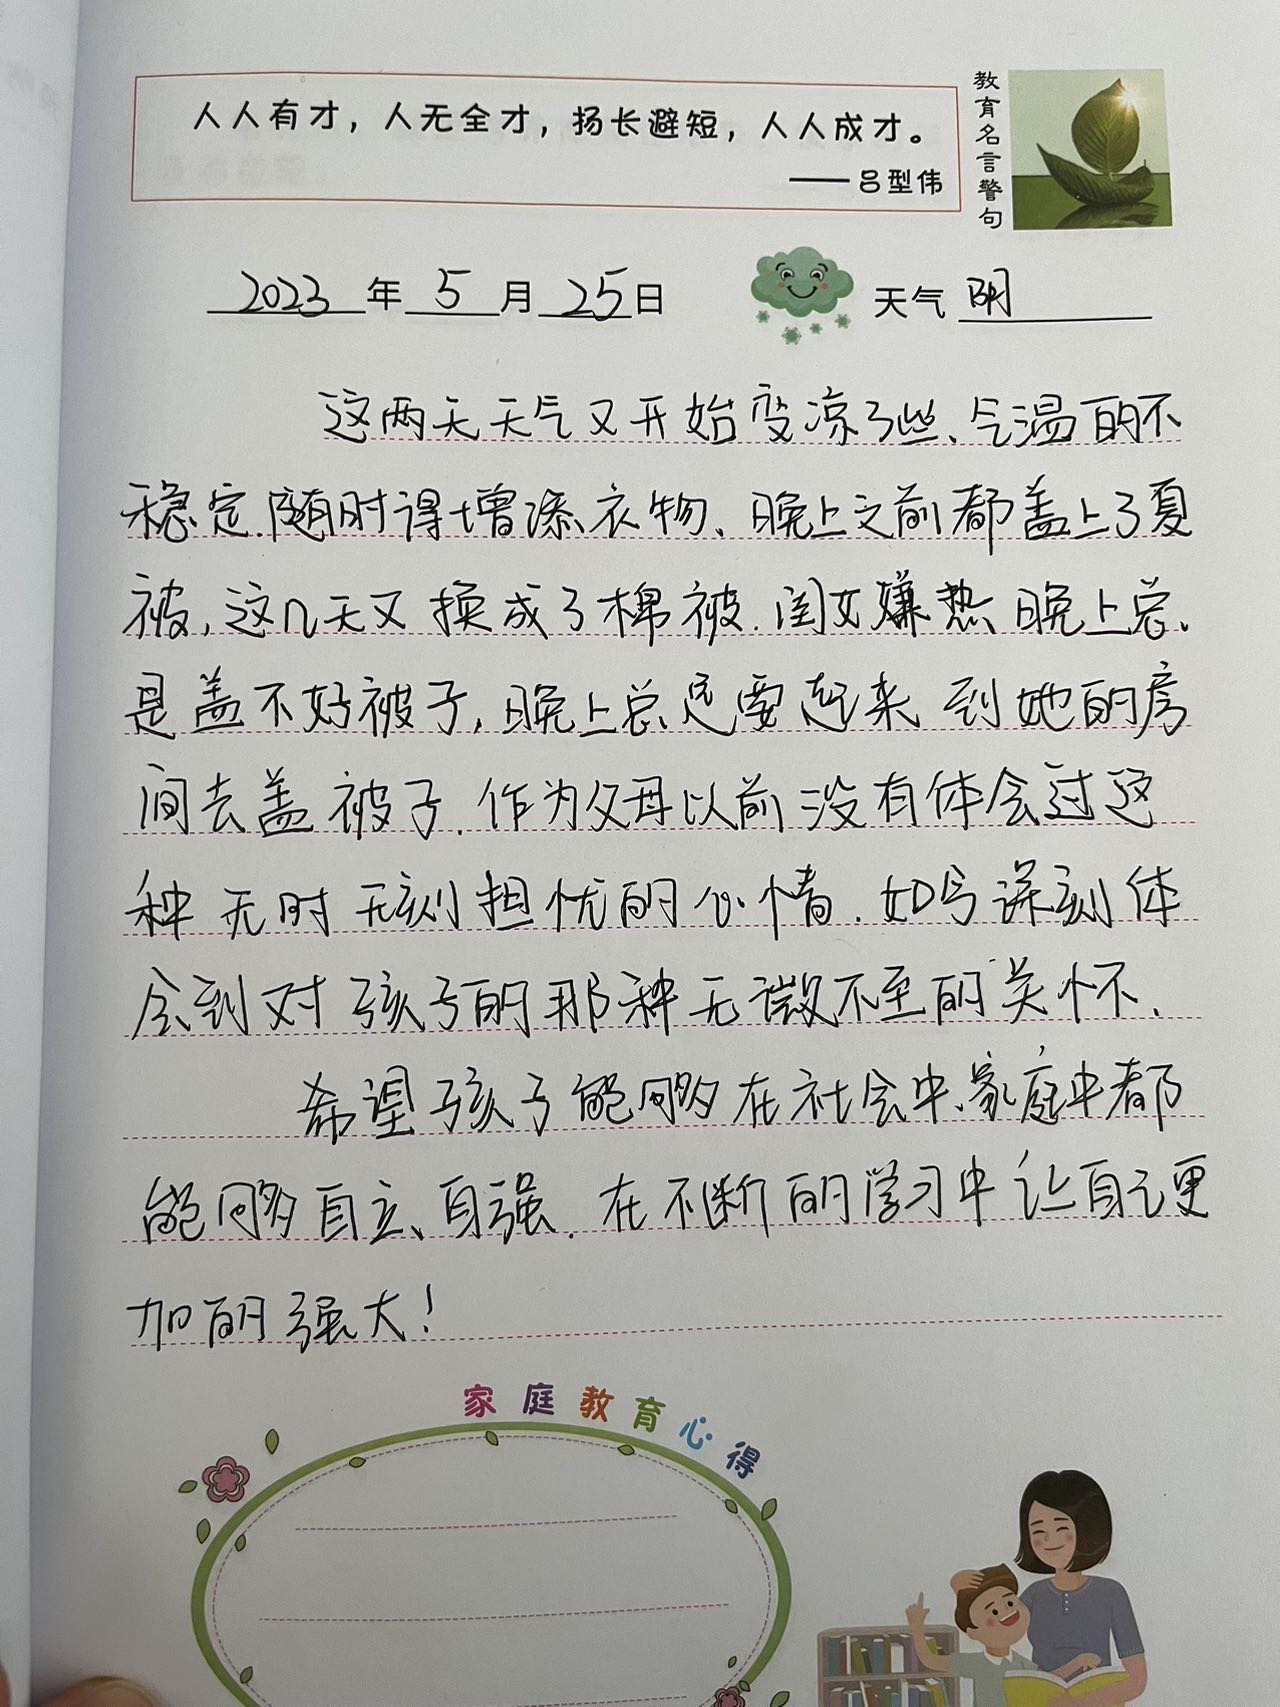 人人有才，人无全才，扬长避短，人人成才。
——吕型伟
教育名言警句
2023年5月25日 天气 阴
这两天天气又开始变凉了些、气温的不
稳定.随时得增添衣物、晚上之前都盖上了夏
被,这几天又换成了棉被.闺女嫌热晚上总、
是盖不好被子,晚上总是要起来到她的房
间去盖被子.作为父母以前没有体会过这
种无时无刻担忧的心情.如今深刻体
会到对孩子的那种无微不至的关怀.
希望孩子能够在社会中、家庭中都
能够自立、自强.在不断的学习中让自己更
加的强大!
家庭教育心得